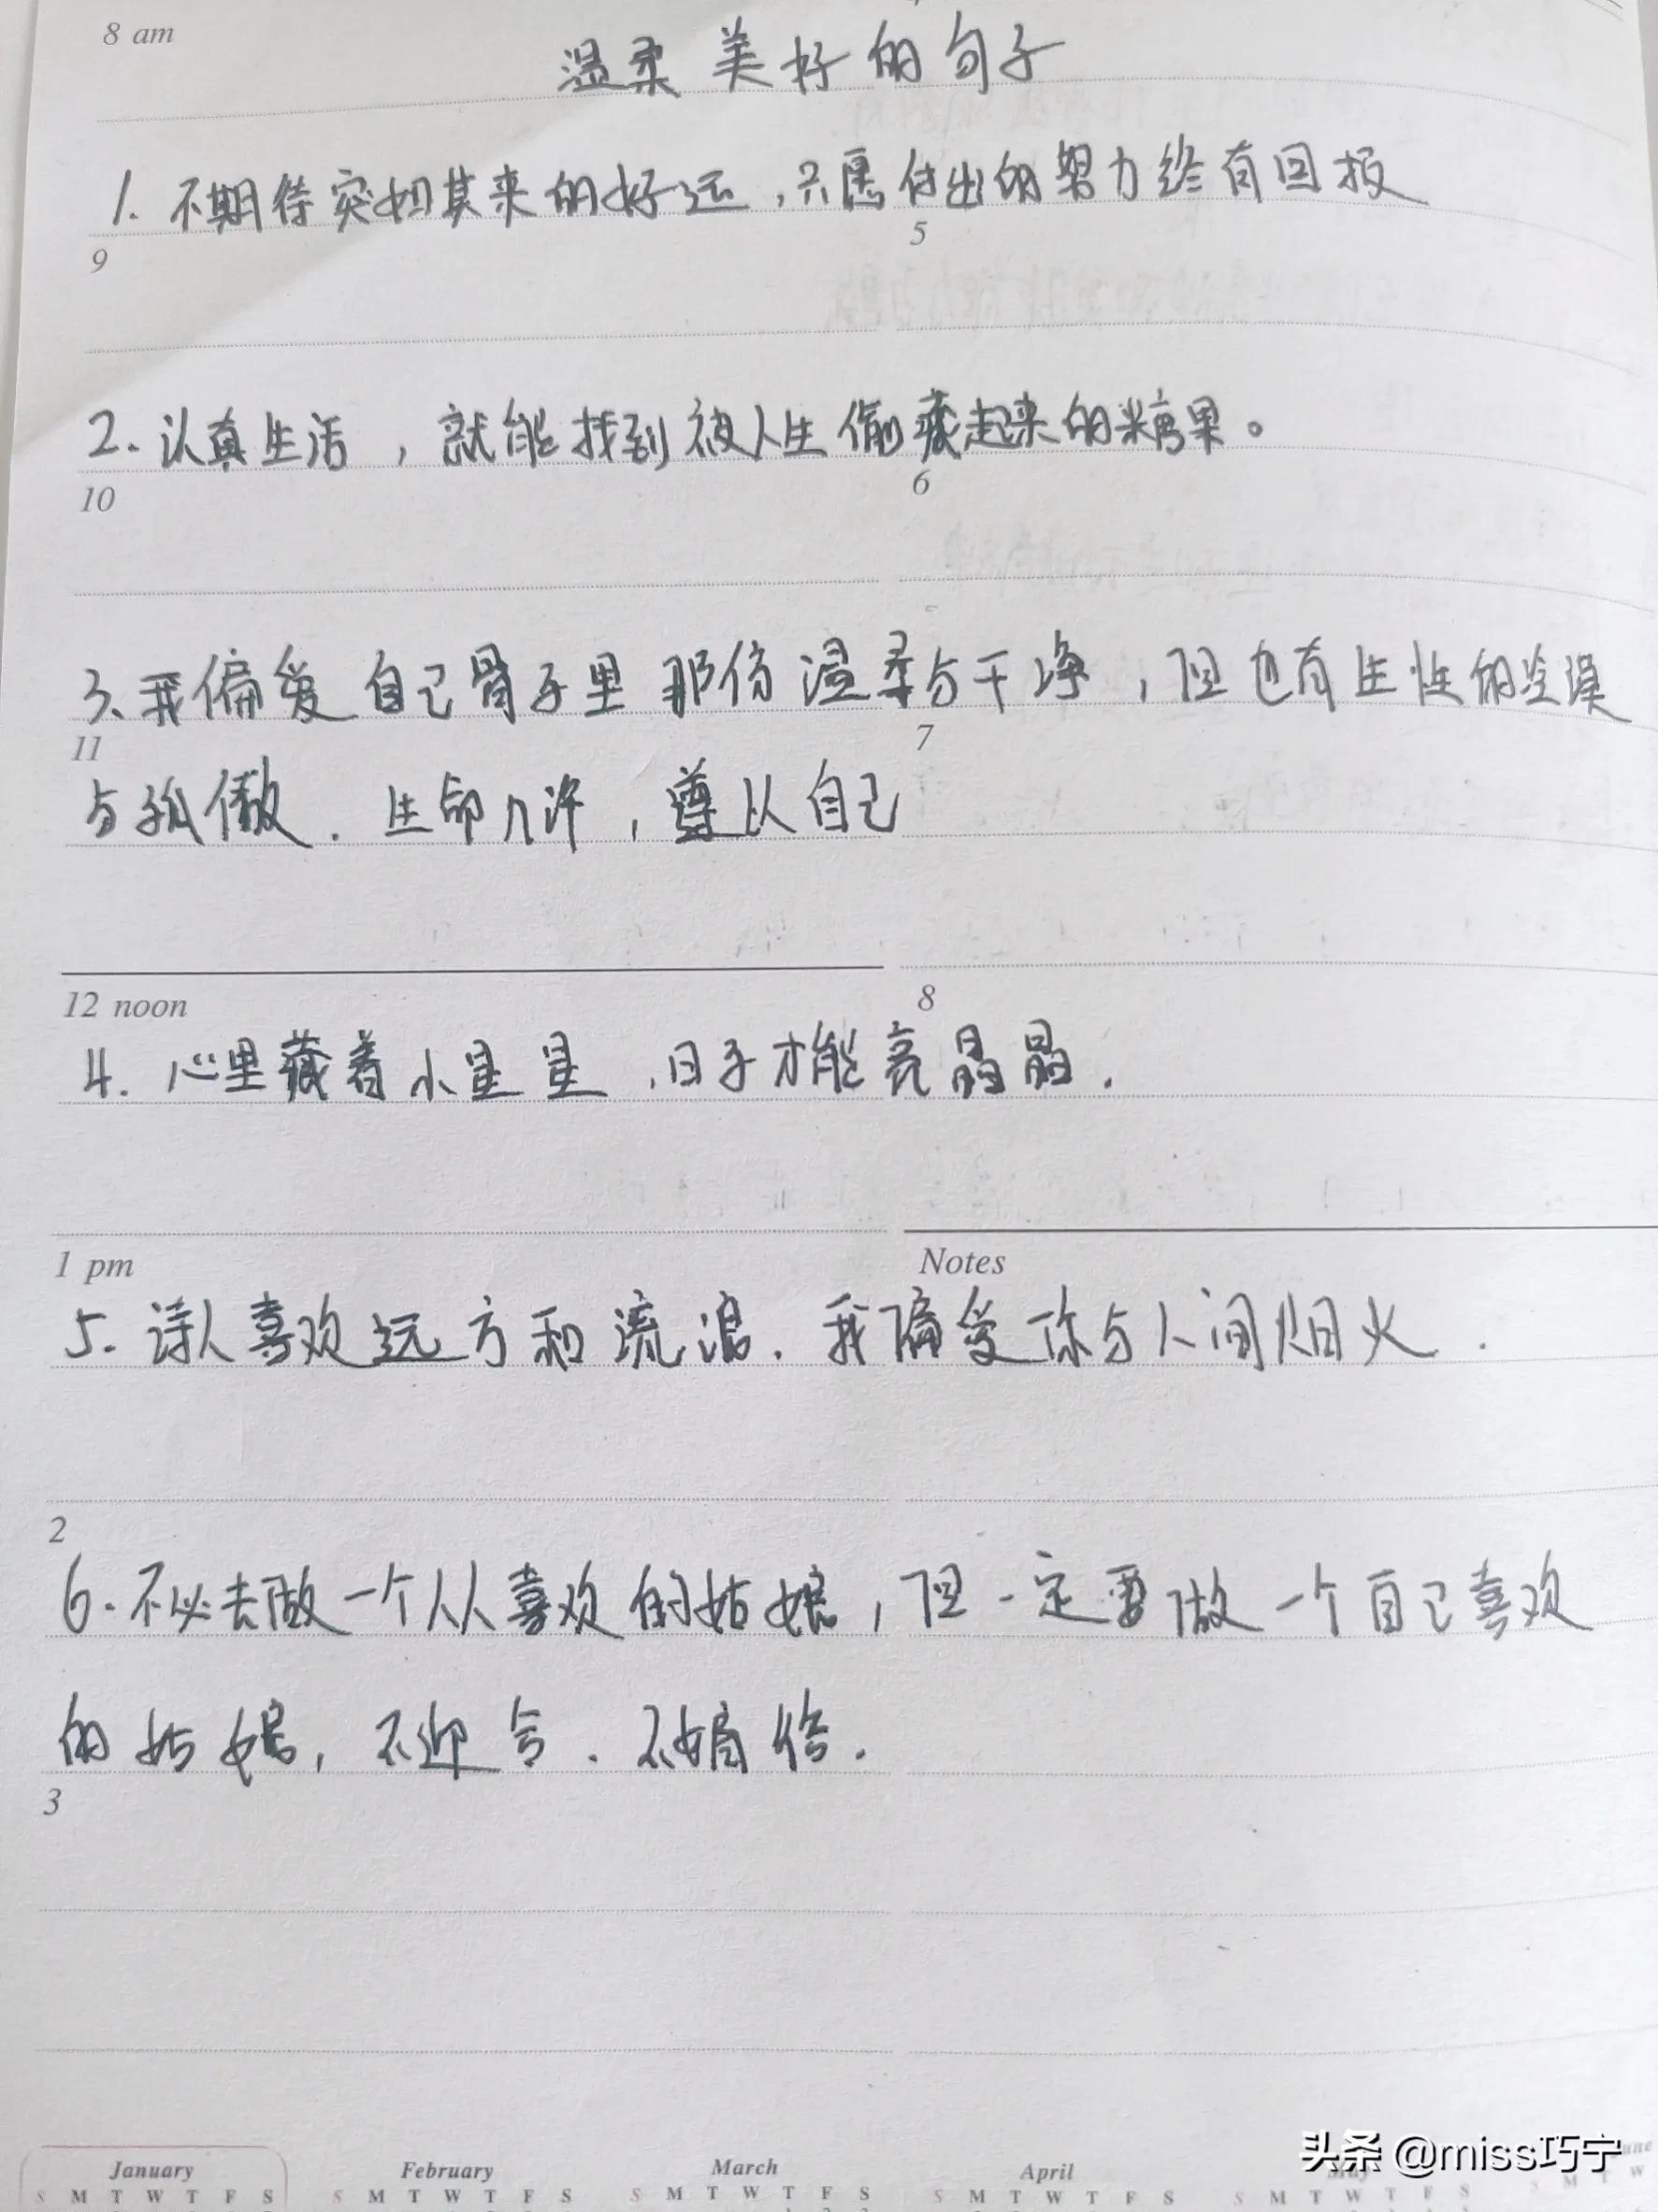 8 am
温柔美好的句子
1. 不期待突如其来的好运，只愿付出的努力终有回报
9 5
2. 认真生活，就能找到被人生偷藏起来的糖果。
10 6
3、我偏爱自己骨子里那份温柔与干净，但也有生性的冷漠
11 7
与孤傲．生命几许，尊从自己
12 noon 8
4. 心里藏着小星星，日子才能亮晶晶．
1 pm Notes
5. 诗人喜欢远方和流浪．我偏爱你与人间烟火．
2
6. 不必去做一个人人喜欢的姑娘，但一定要做一个自己喜欢
的姑娘，不迎合．不媚俗．
3
January February March April May
S M T W T F S S M T W T F S S M T W T F S S M T W T F S S M T W T F S
头条 @miss巧宁